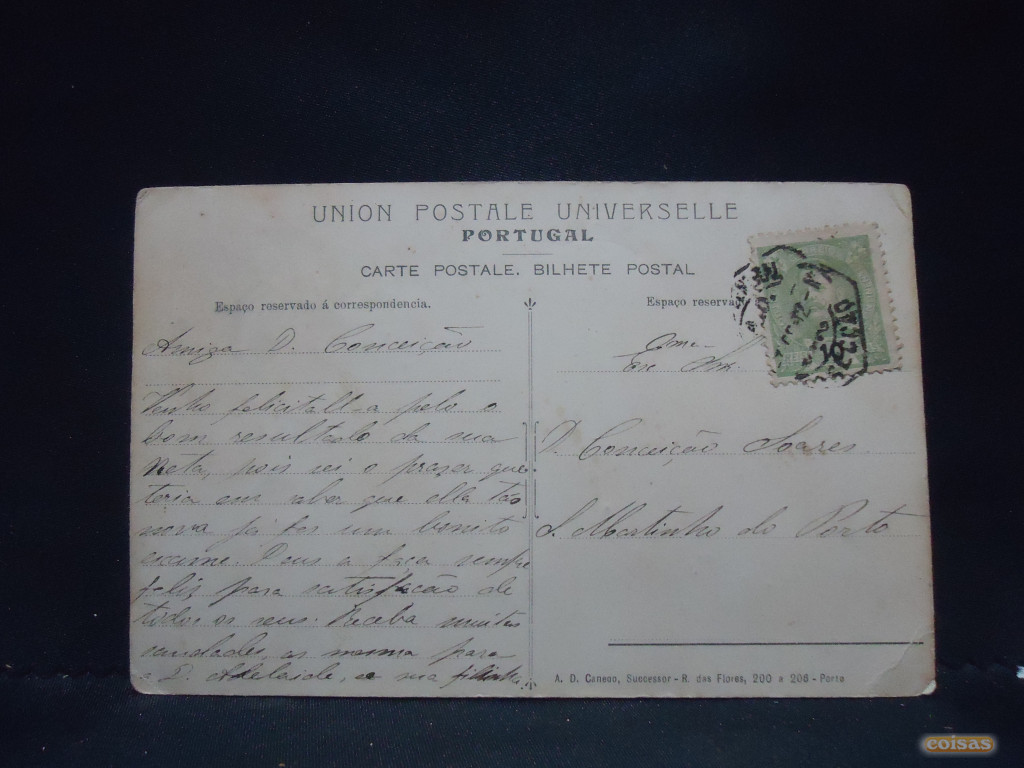 UNION POSTALE UNIVERSELLE
PORTUGAL
CARTE POSTALE. BILHETE POSTAL
Espaço reservado á correspondencia.
Espaço reserva
Amiga D. Conceição
Venho felicitall-a pelo o
bom resultado da sua
Neta, pois sei o praser que
teria em saber que ella tão
nova já fes um bonito
exame. Deus a faça sempre
felis para satisfacão de
todos os seus. Receba muitas
saudades, as mesma para
a D. Adelaide, e sua filinha
Exma
D. Conceição Soares.
S. Martinho do Porto
A. D. Canedo, Successor - R. das Flores, 200 a 206 - Porto
coisas